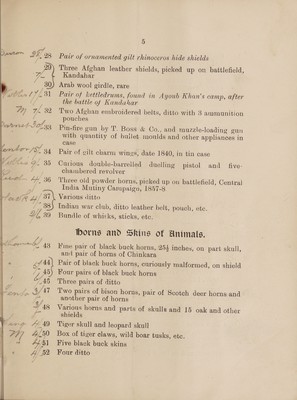 5
28 Pair of ornamented gilt rhinoceros hide shields
29 Three Afghan leather shields, picked up on battlefield,
Kandahar
30 Arab wool girdle, rare
31 Pair of kettledrums, found in Ayoub Khan's camp, after
the battle of Kandahar
32 Two Afghan embroidered belts, ditto with 3 ammunition
pouches
33 Pin-fire gun by T. Boss & Co., and muzzle-loading gun
with quantity of bullet moulds and other appliances in
case
34 Pair of gilt charm wings, date 1840, in tin case
35 Curious double-barrelled duelling pistol and five-
chambered revolver
36 Three old powder horns, picked up on battlefield, Central
India Mutiny Campaign, 1857-8
37 Various ditto
38 Indian war club, ditto leather belt, pouch, etc.
39 Bundle of whisks, sticks, etc.
Horns and Skins of Animals.
43 Fine pair of black buck horns, 25½ inches, on part skull,
and pair of horns of Chinkara
44 Pair of black buck horns, curiously malformed, on shield
45 Four pairs of black buck horns
46 Three pairs of ditto
47 Two pairs of bison horns, pair of Scotch deer horns and
another pair of horns
48 Various horns and parts of skulls and 15 oak and other
shields
49 Tiger skull and leopard skull
50 Box of tiger claws, wild boar tusks, etc.
51 Five black buck skins
52 Four ditto